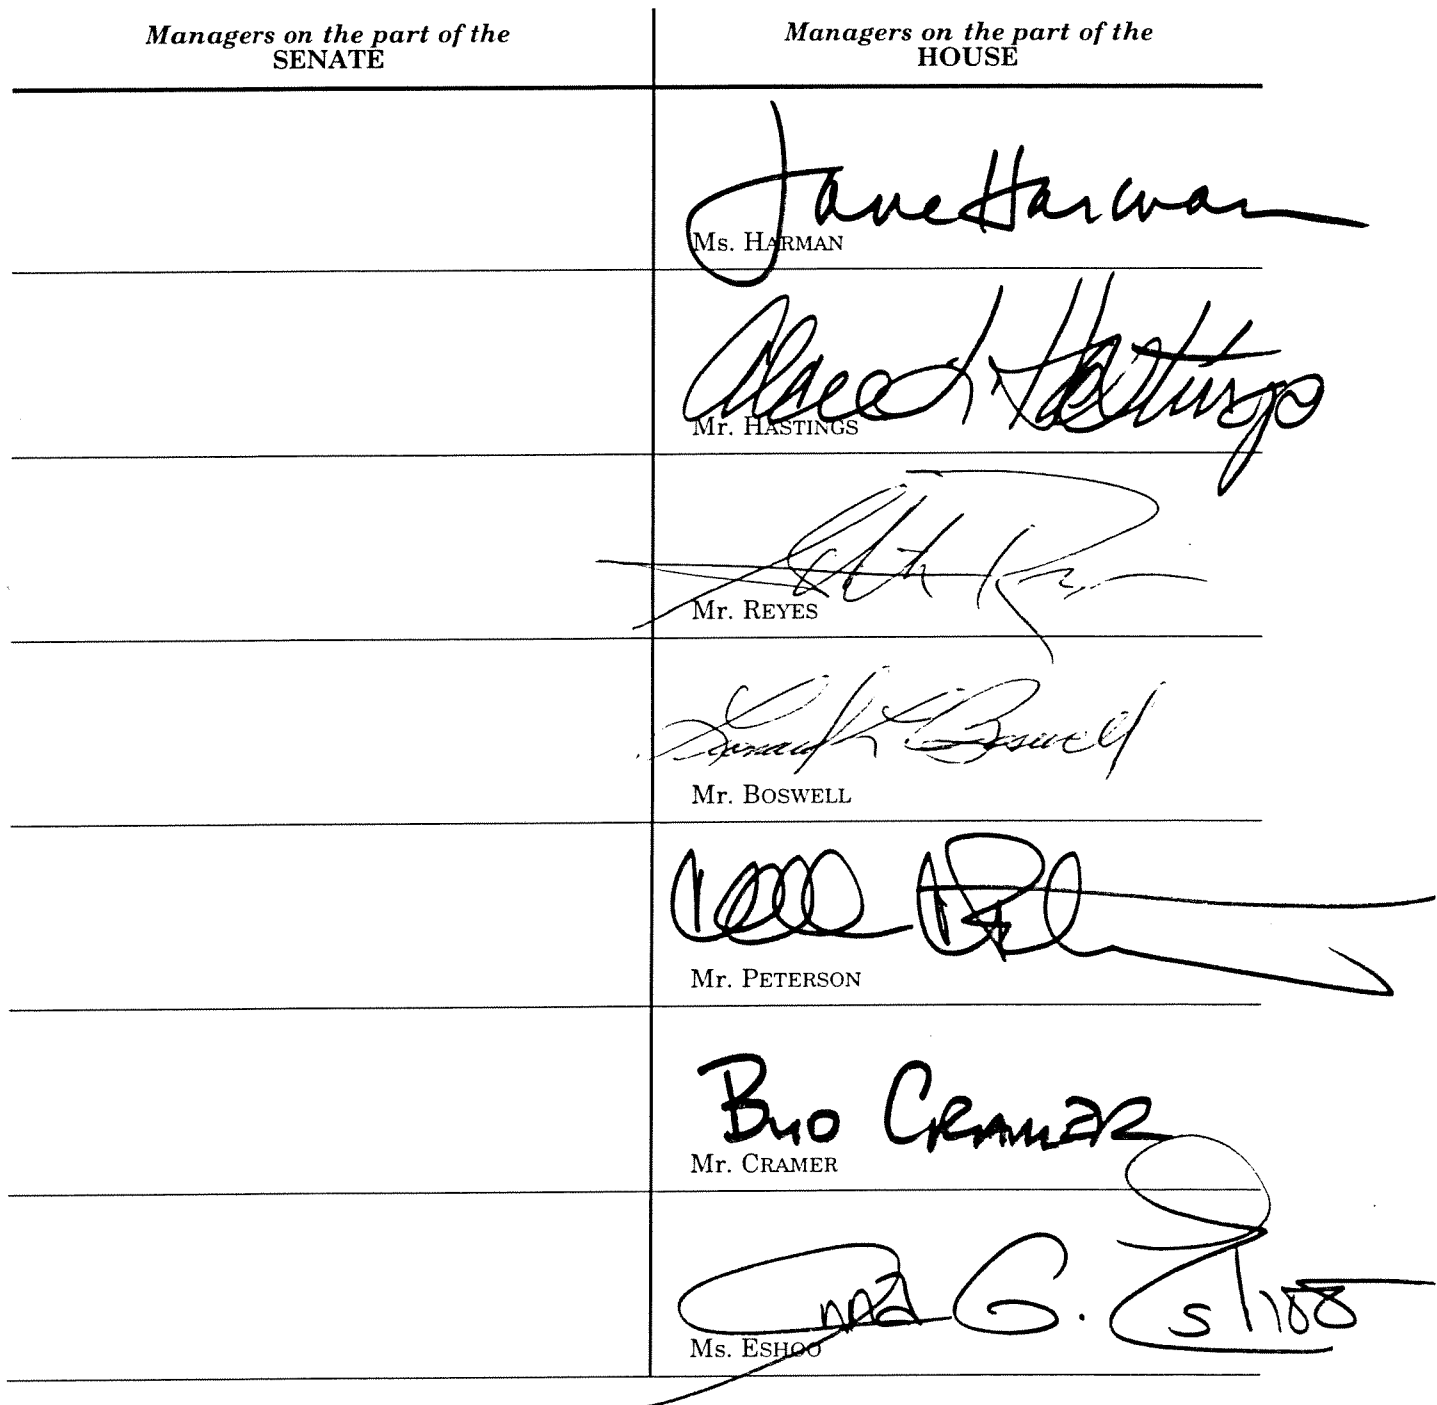 Managers on the part of the
SENATE
Managers on the part of the
HOUSE
Jane Harman
Ms. HARMAN
Alcee L Hastings
Mr. HASTINGS
Mr. REYES
Leonard L Boswell
Mr. BOSWELL
Mr. PETERSON
BUD CRAMER
Mr. CRAMER
Anna G. Eshoo
Ms. ESHOO